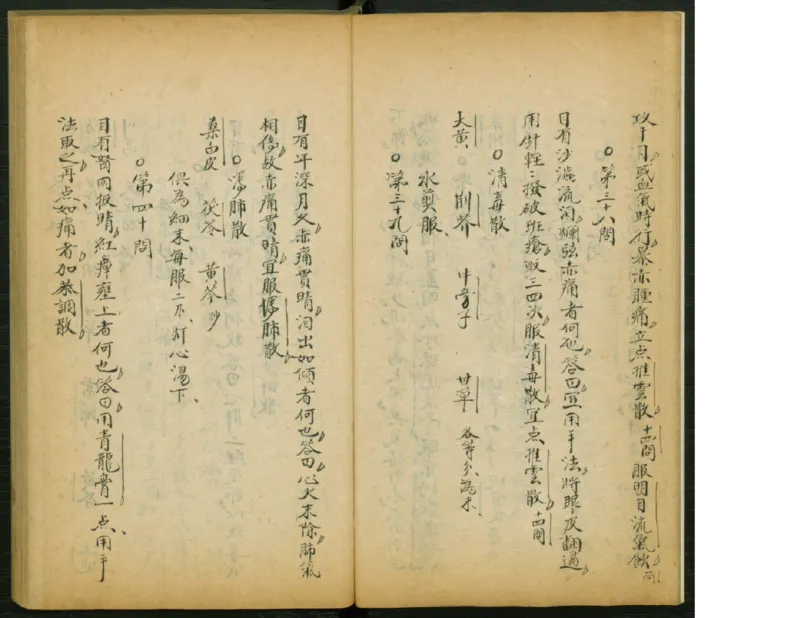 攻于目或血氣時行暴赤腫痛立点推雲散十四問服明目流氣飲問
○第三十八問
目有沙澁流泪爛弦赤痛者何也答曰宜用手法將眼皮翻過
用針輕々撥破班瘡取三四次服清毒散宜点推雲散十四問
○清毒散
大黃 荆芥 牛旁子 甘草 各等分為末
水煎服
○第三十九問
目有年深月久赤痛貫睛泪出如傾者何也答曰心火未除肺氣
相傷故赤痛貫睛宜服瀉肺散
○瀉肺散
桑白皮 茯苓 黃芩炒
俱為細末每服二匁灯心湯下
○第四十問
目有醫肉扳睛紅瘴壅上者何也答曰用青龍膏一点用手
法取之再点如痛者加恭調散